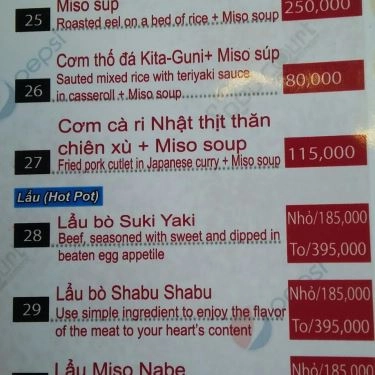 Miso súp
25
Roasted eel on a bed of rice + Miso soup
250,000
Cơm thố đá Kita-Guni+ Miso súp
26
Sauted mixed rice with teriyaki sauce
in casseroll + Miso soup
80,000
Cơm cà ri Nhật thịt thăn
chiên xù + Miso soup
27
Fried pork cutlet in Japanese curry + Miso soup
115,000
Lẩu (Hot Pot)
Lẩu bò Suki Yaki
Nhỏ/185,000
28
Beef, seasoned with sweet and dipped in
beaten egg appetile
To/395,000
Lẩu bò Shabu Shabu
Nhỏ/185,000
29
Use simple ingredient to enjoy the flavor
of the meat to your heart's content
To/395,000
Lẩu Miso Nabe
Nhỏ/185,000
pepsi
pepsi